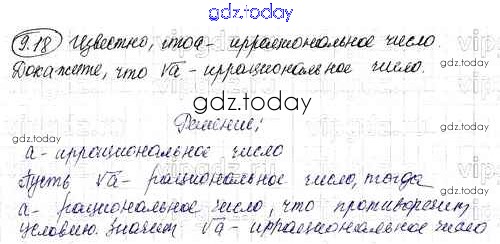 gdz.today
9.18 Известно, что a - иррациональное число.
Докажите, что √a - иррациональное число.
gdz.today
Решение:
a - иррациональное число
Пусть √a - рациональное число, тогда
a - рациональное число, что противоречит
условию. Значит √a - иррациональное число
gdz.today